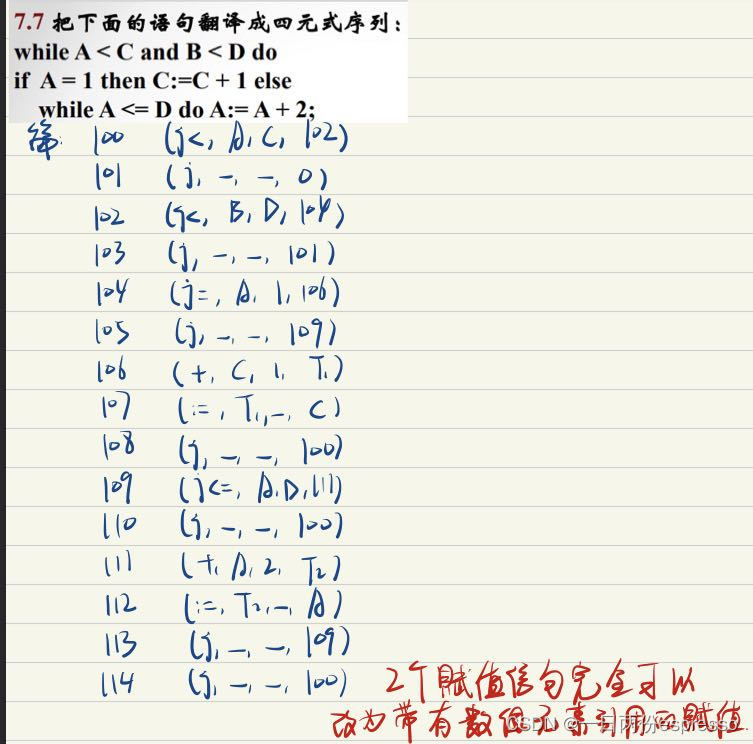 7.7 把下面的语句翻译成四元式序列:
while A < C and B < D do
if A = 1 then C:=C + 1 else
while A <= D do A:= A + 2;
答: 100 (j<, A, C, 102)
101 (j, -, -, 0)
102 (j<, B, D, 104)
103 (j, -, -, 101)
104 (j=, A, 1, 106)
105 (j, -, -, 109)
106 (+, C, 1, T1)
107 (:=, T1, -, C)
108 (j, -, -, 100)
109 (j<=, A, D, 111)
110 (j, -, -, 100)
111 (+, A, 2, T2)
112 (:=, T2, -, A)
113 (j, -, -, 109)
114 (j, -, -, 100)
2个赋值语句完全可以
改为带有数组元素引用的赋值
CSDN @一日两份espresso